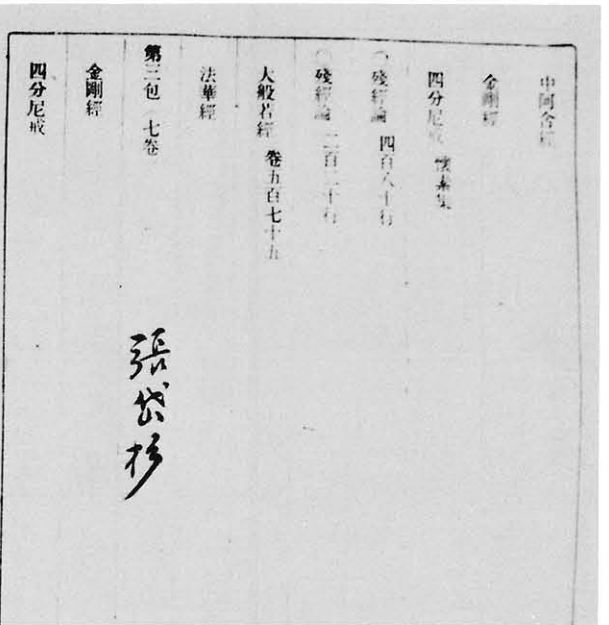 中阿含經
金剛經
四分尼戒 懷素集
〇殘經論 四百八十行
〇殘經論 二百二十行
大般若經 卷五百七十五
法華經
第三包 七卷
張岱杉
金剛經
四分尼戒